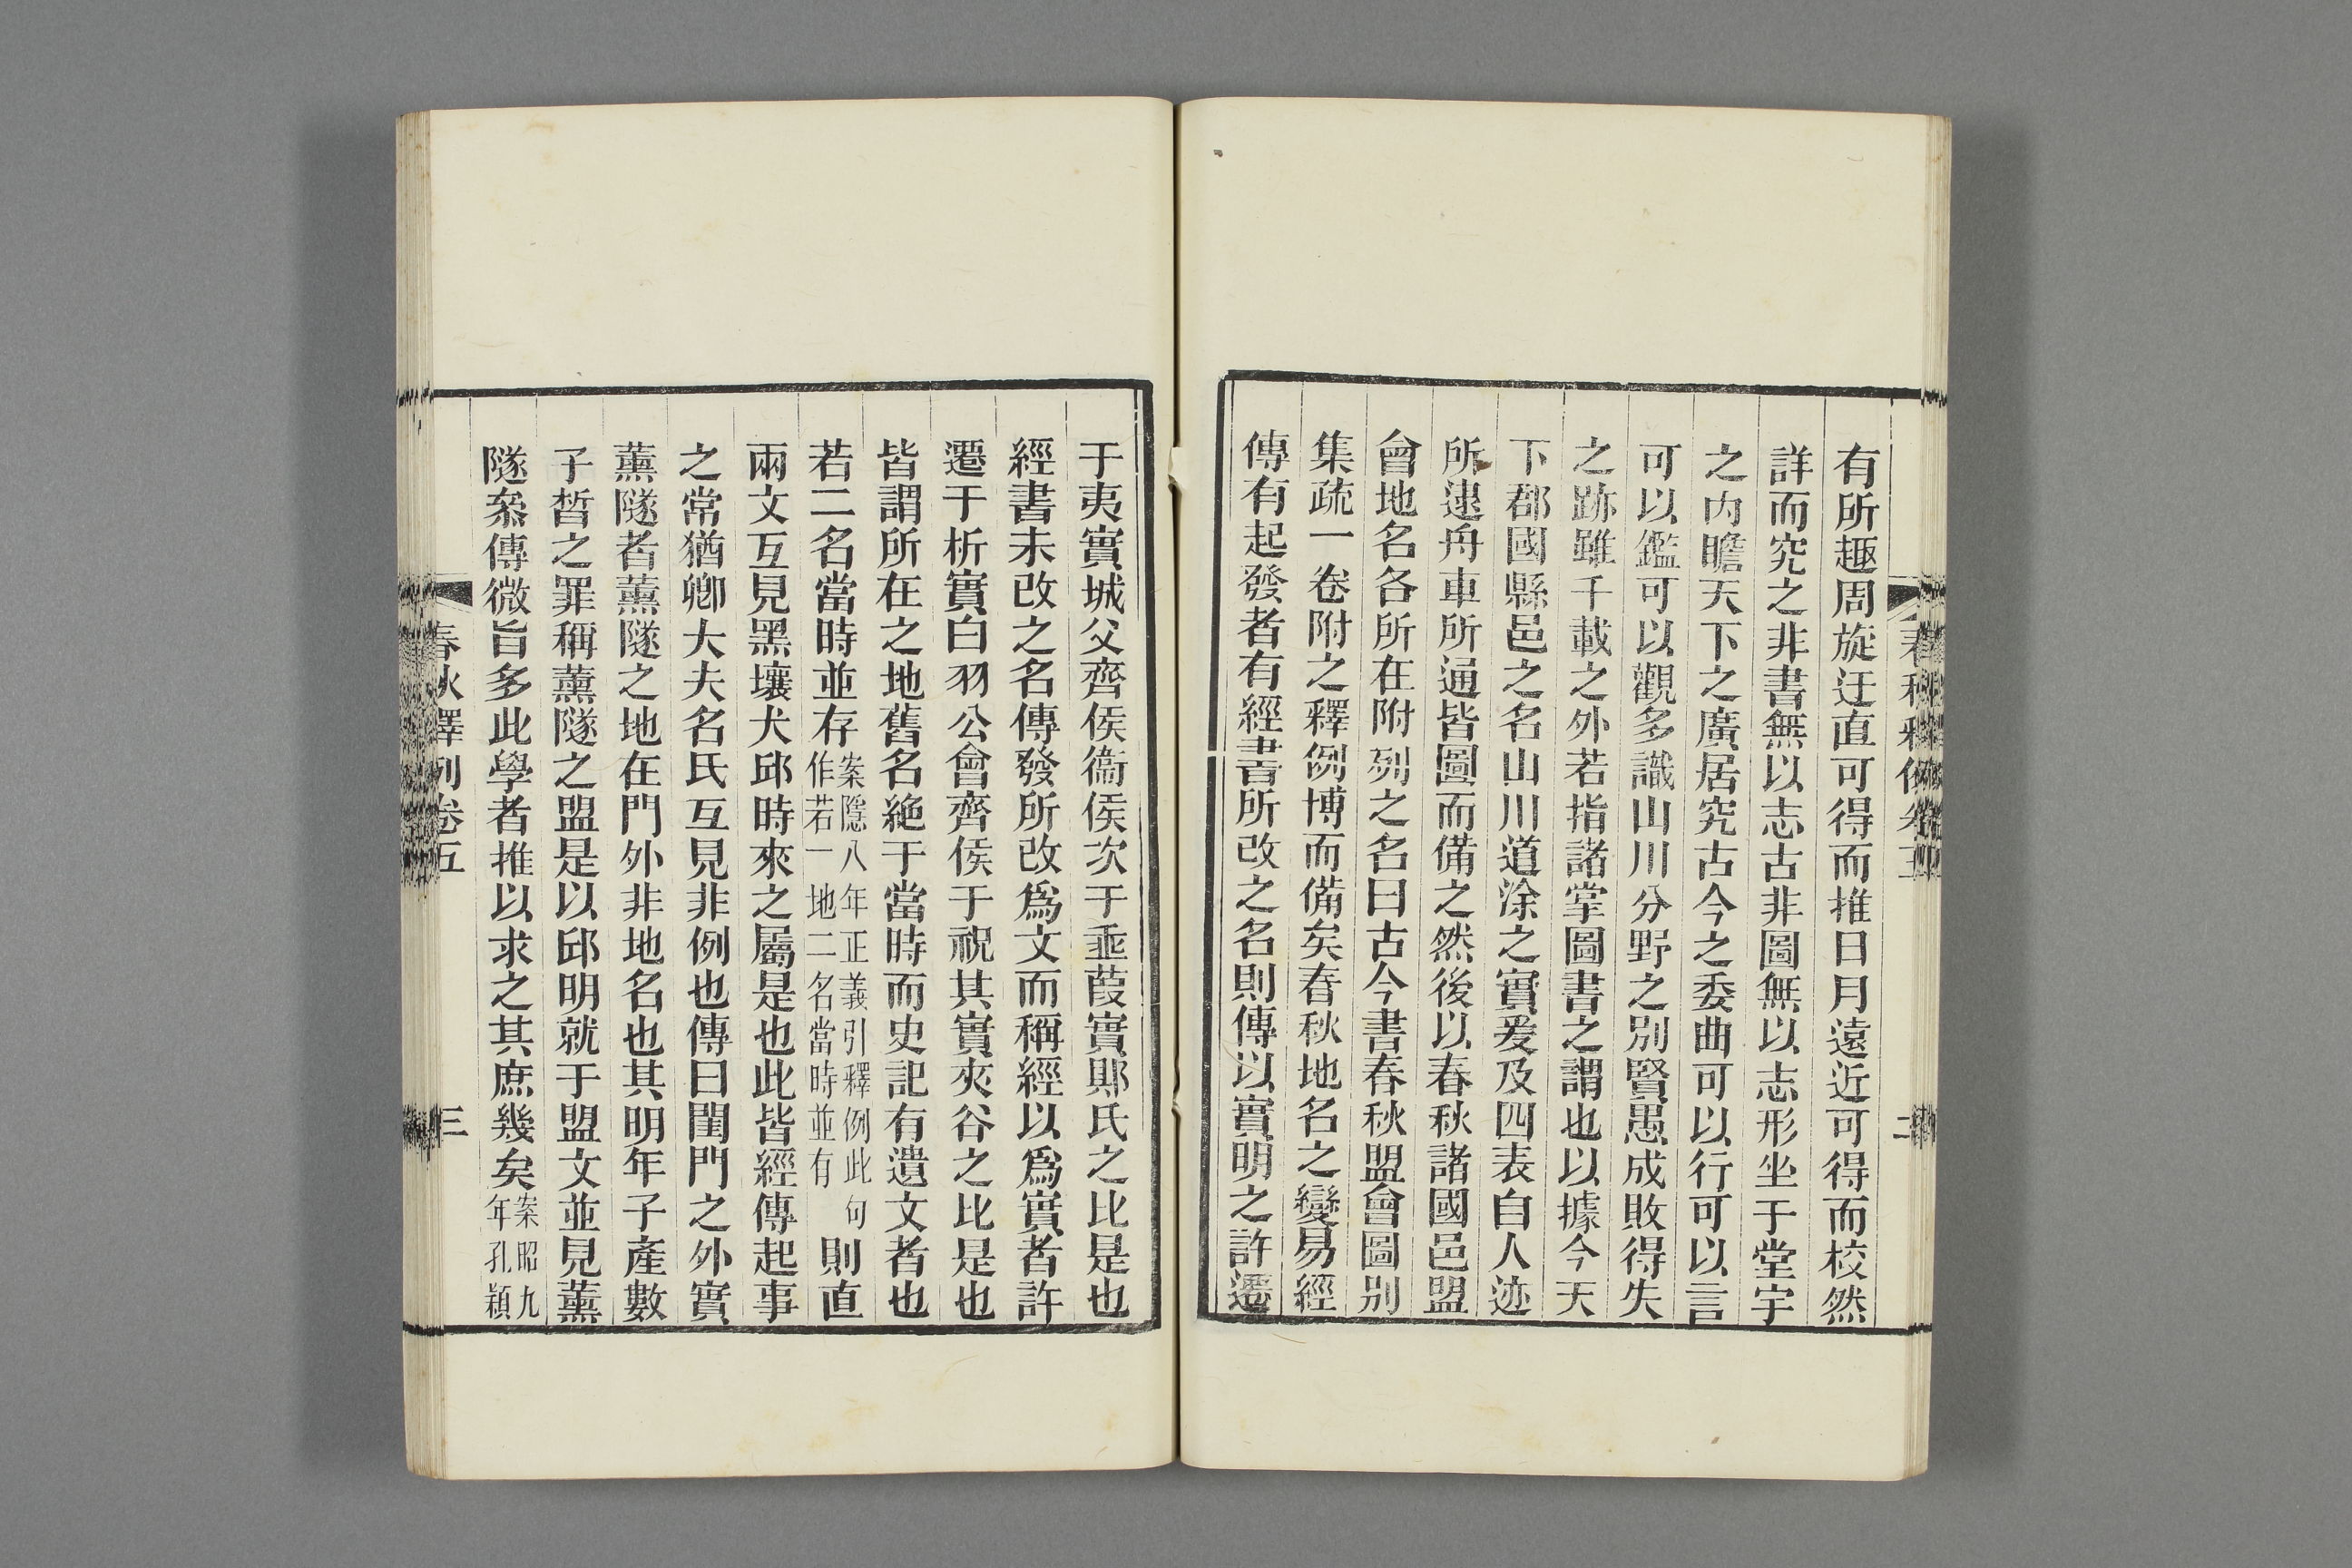 有所趣周旋迂直可得而推日月遠近可得而校然
詳而究之非書無以志古非圖無以志形坐于堂宇
之內瞻天下之廣居究古今之委曲可以行可以言
可以鑑可以觀多識山川分野之別賢愚成敗得失
之跡雖千載之外若指諸掌圖書之謂也以據今天
下郡國縣邑之名山川道涂之實爰及四表自人迹
所逮舟車所通皆圖而備之然後以春秋諸國邑盟
會地名各所在附列之名曰古今書春秋盟會圖別
集疏一卷附之釋例博而備矣春秋地名之變易經
傳有起發者有經書所改之名則傳以實明之許遷
于夷實城父齊侯衞侯次于垂葭實郹氏之比是也
經書未改之名傳發所改爲文而稱經以爲實者許
遷于析實白羽公會齊侯于祝其實夾谷之比是也
皆謂所在之地舊名絶于當時而史記有遺文者也
若二名當時並存案隱八年正義引釋例此句作若一地二名當時並有則直
兩文互見黑壤犬邱時來之屬是也此皆經傳起事
之常猶卿大夫名氏互見非例也傳曰閨門之外實
薰隧者薰隧之地在門外非地名也其明年子產數
子晳之罪稱薰隧之盟是以邱明就于盟文並見薰
隧叅傳微旨多此學者推以求之其庶幾矣案昭九年孔穎
春秋釋例卷五
三